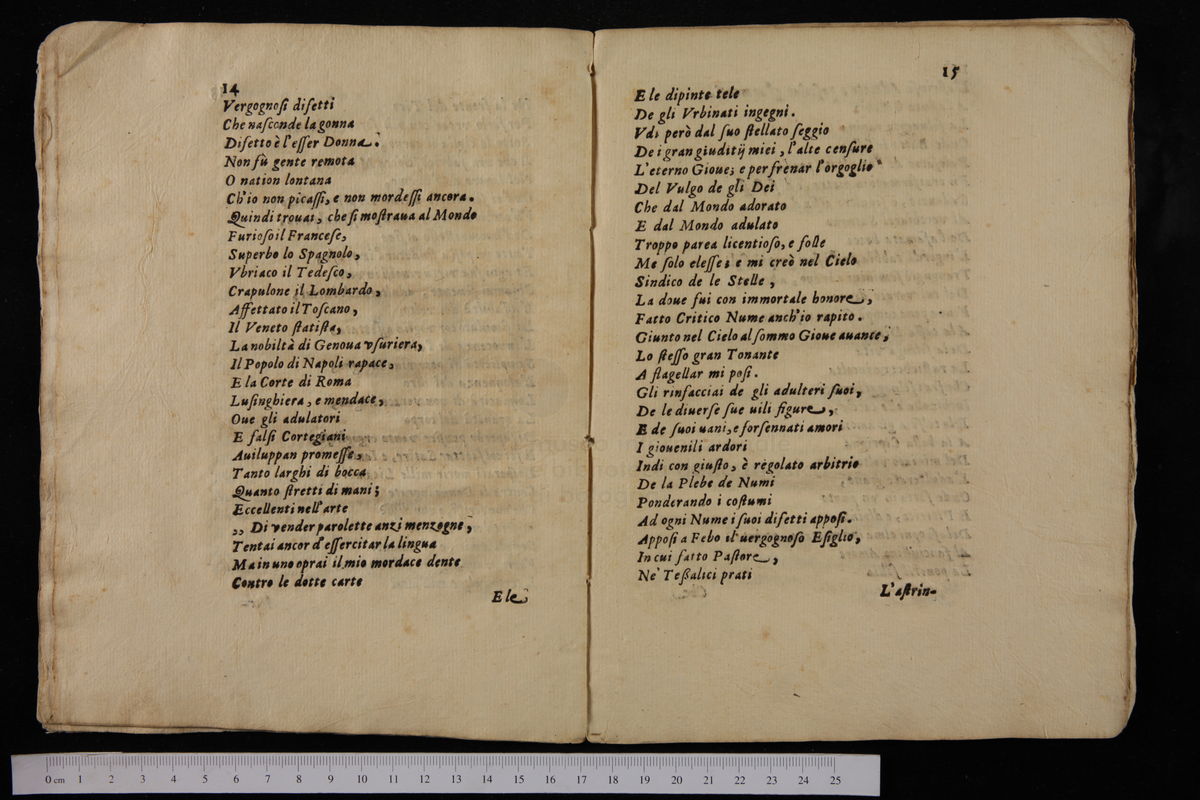 14
Vergognoſi difetti
Che naſconde la gonna
Difetto è l'eſſer Donna.
Non fù gente remota
O nation lontana
Ch'io non picaſſi, e non mordeſſi ancora.
Quindi trouai, che ſi moſtraua al Mondo
Furioſo il Franceſe,
Superbo lo Spagnolo,
Vbriaco il Tedeſco,
Crapulone il Lombardo,
Affettato il Toſcano,
Il Veneto ſtatiſta,
La nobiltà di Genoua vſuriera,
Il Popolo di Napoli rapace,
E la Corte di Roma
Luſinghiera, e mendace,
Oue gli adulatori
E falſi Cortegiani
Auiluppan promeſſe,
Tanto larghi di bocca
Quanto ſtretti di mani;
Eccellenti nell'arte
,, Di vender parolette anzi menzogne,
Tentai ancor d'eſſercitar la lingua
Ma in uno oprai il mio mordace dente
Contro le dotte carte
E le
15
E le dipinte tele
De gli Vrbinati ingegni.
Vdì però dal ſuo ſtellato ſeggio
De i gran giuditij miei, l'alte cenſure
L'eterno Gioue; e per frenar l'orgoglio
Del Vulgo de gli Dei
Che dal Mondo adorato
E dal Mondo adulato
Troppo parea licentioſo, e folle
Me ſolo eleſſe; e mi creò nel Cielo
Sindico de le Stelle,
La doue fui con immortale honore,
Fatto Critico Nume anch'io rapito.
Giunto nel Cielo al ſommo Gioue auante,
Lo ſteſſo gran Tonante
A flagellar mi poſi.
Gli rinfacciai de gli adulteri ſuoi,
De le diuerſe ſue uili figure,
E de ſuoi uani, e forſennati amori
I giouenili ardori
Indi con giuſto, è regolato arbitrio
De la Plebe de Numi
Ponderando i coſtumi
Ad ogni Nume i ſuoi difetti appoſi.
Appoſi a Febo il uergognoſo Eſiglio,
In cui fatto Paſtore,
Ne' Teßalici prati
L'aſtrin-
0 cm 1 2 3 4 5 6 7 8 9 10 11 12 13 14 15 16 17 18 19 20 21 22 23 24 25